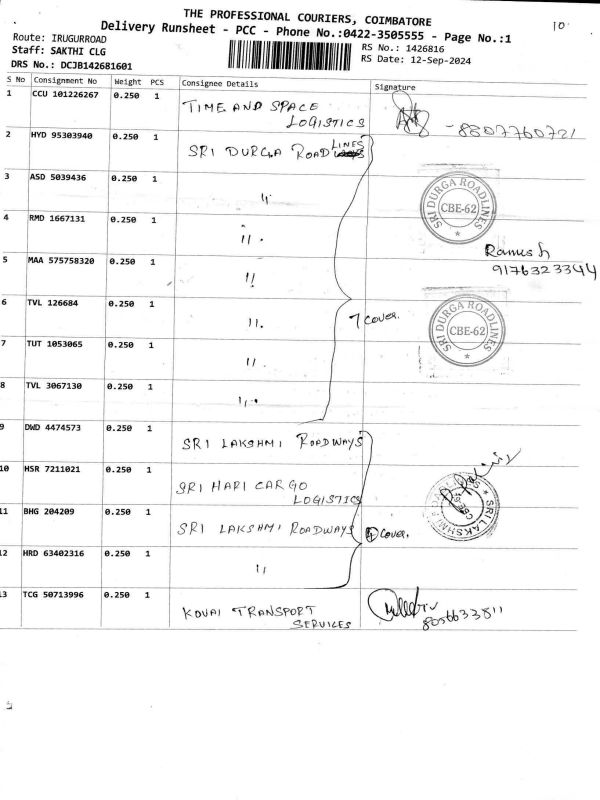 THE PROFESSIONAL COURIERS, COIMBATORE
10
Delivery Runsheet - PCC - Phone No.:0422-3505555 - Page No.:1
Route: IRUGURROAD
RS No.: 1426816
Staff: SAKTHI CLG
RS Date: 12-Sep-2024
DRS No.: DCJB142681601
S No Consignment No Weight PCS Consignee Details Signature
1 CCU 101226267 0.250 1 TIME AND SPACE
LOGISTICS
8807760721
2 HYD 95303940 0.250 1 SRI DURGA ROAD LINES
3 ASD 5039436 0.250 1 "
SRI DURGA ROADLINES
CBE-62
4 RMD 1667131 0.250 1 "
Ramesh
5 MAA 575758320 0.250 1 "
9176323344
6 TVL 126684 0.250 1 "
7 cover.
SRI DURGA ROADLINES
CBE-62
7 TUT 1053065 0.250 1 "
8 TVL 3067130 0.250 1 "
9 DWD 4474573 0.250 1 SRI LAKSHMI ROADWAYS
10 HSR 7211021 0.250 1 SRI HARI CARGO
LOGISTICS
11 BHG 204209 0.250 1 SRI LAKSHMI ROADWAYS
4 cover.
SRI LAKSHMI
12 HRD 63402316 0.250 1 "
13 TCG 50713996 0.250 1 KOVAI TRANSPORT
SERVICES
8056633811